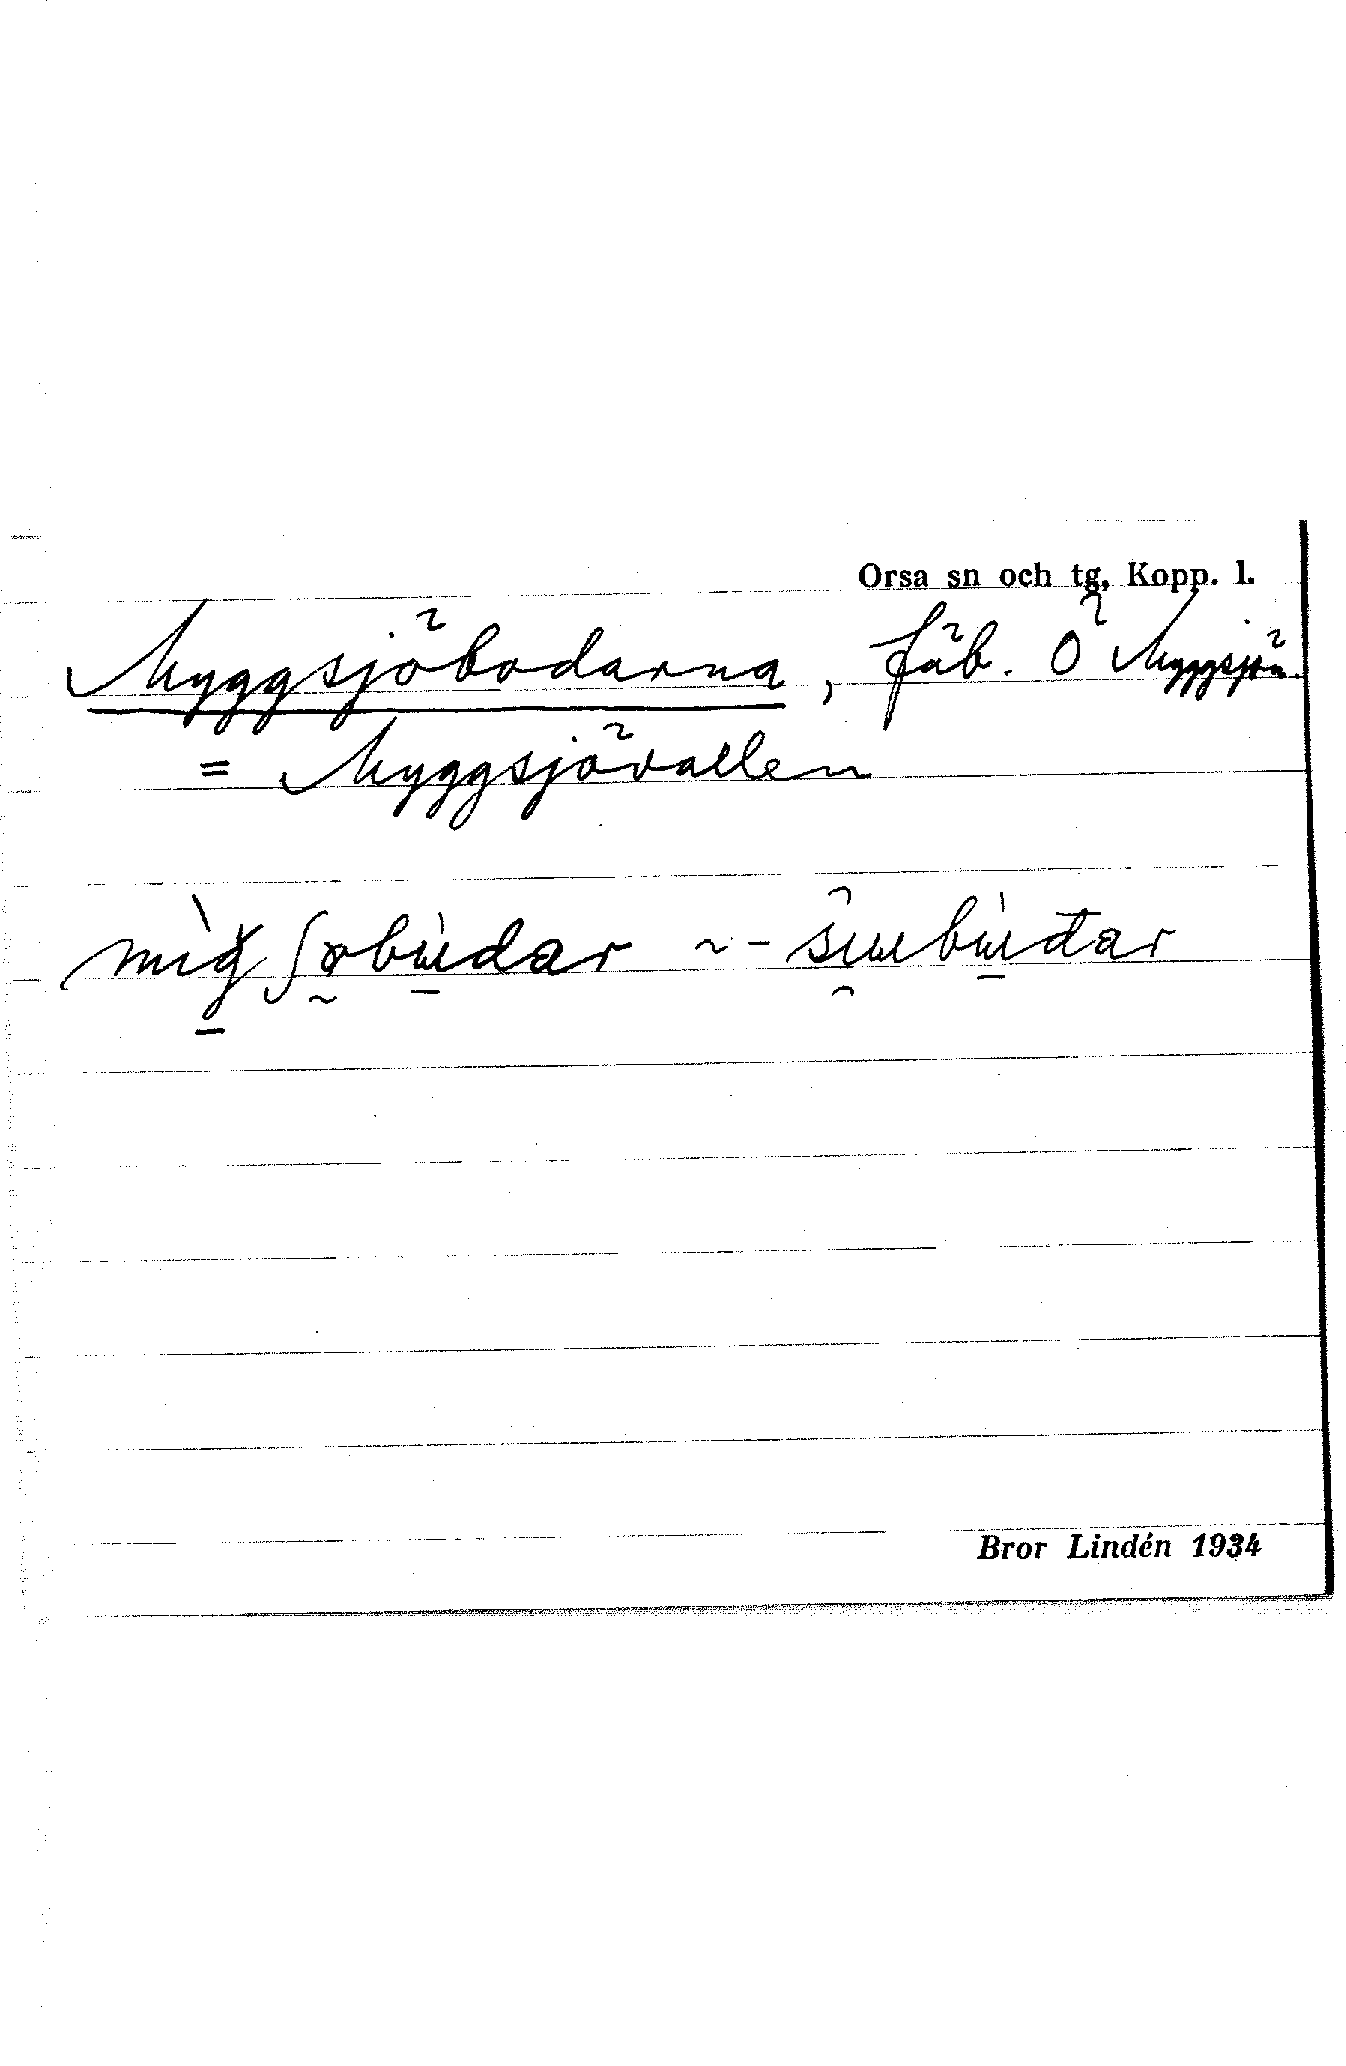 Orsa sn och tg, Kopp. l.
Myggsjöbodarna, fäb. Ö Myggsjön.
= Myggsjövallen
Bror Lindén 1934